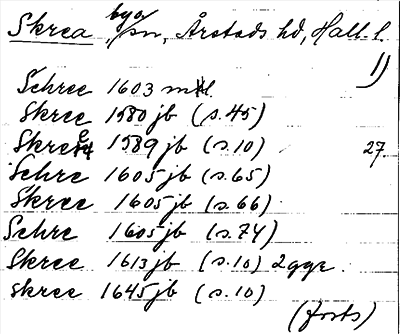 Skrea by o/sn, Årstads hd, Hall. l.
1)
Schree 1603 mtl
Skree 1580 jb (s.45)
Skree 1589 jb (s.10) 27.
Schre 1605 jb (s.65)
Skree 1605 jb (s.66)
Schre 1605 jb (s.74)
Skree 1613 jb (s.10) 2 ggr.
Skree 1645 jb (s.10)
(forts)